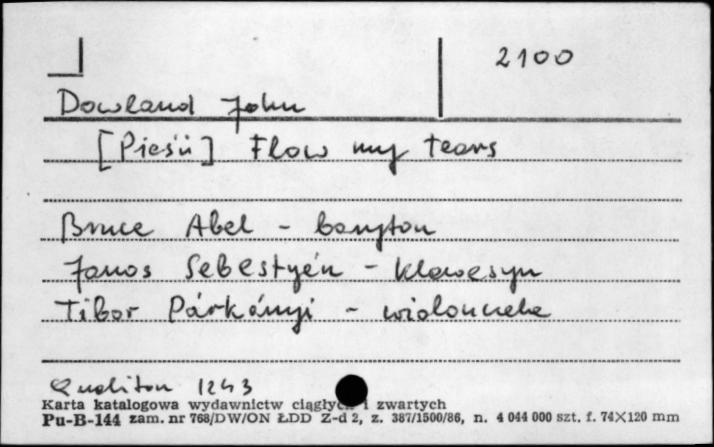 2100
Dowland John
[Pieśń] Flow my tears
Bruce Abel - baryton
Janos Sebestyén - klawesyn
Tibor Párkányi - wiolonczela
Qualiton 1243
Karta katalogowa wydawnictw ciągłych i zwartych
Pu-B-144 zam. nr 768/DW/ON ŁDD Z-d 2, z. 387/1500/86, n. 4 044 000 szt. f. 74X120 mm